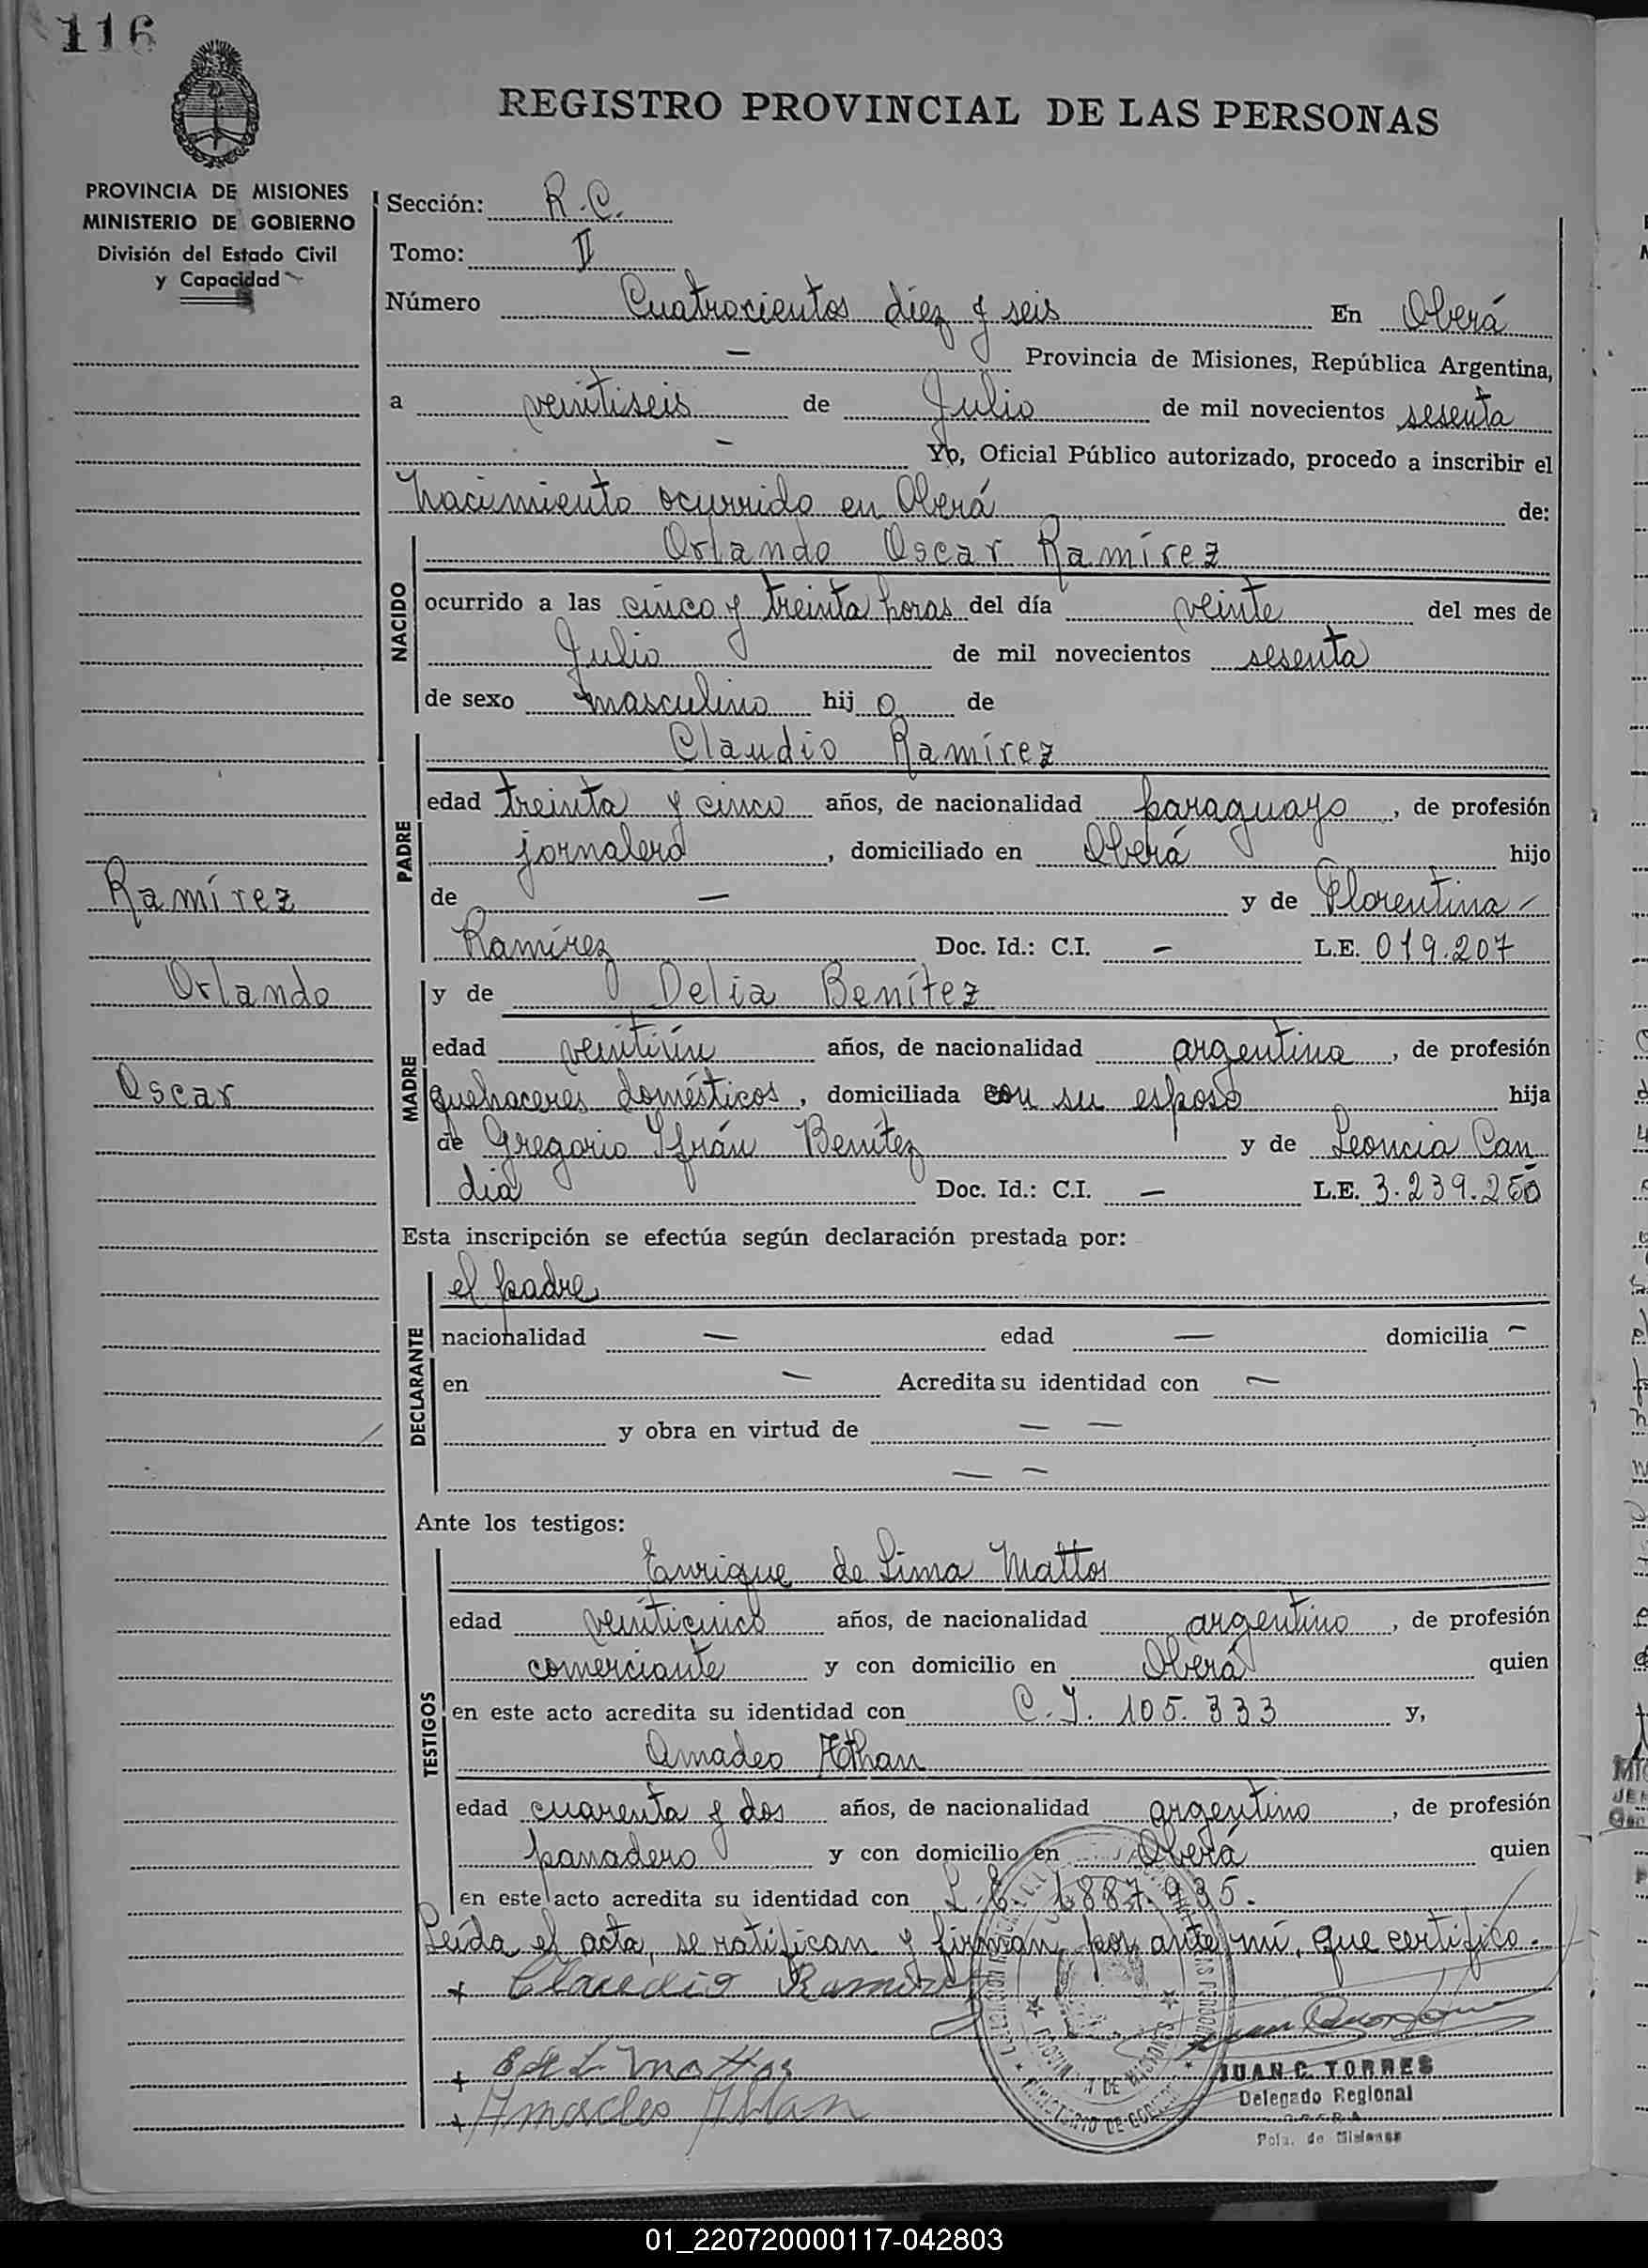 116
REGISTRO PROVINCIAL DE LAS PERSONAS
PROVINCIA DE MISIONES
MINISTERIO DE GOBIERNO
División del Estado Civil
y Capacidad
Sección: R.C.
Tomo: II
Número Cuatrocientos diez y seis En Oberá
— Provincia de Misiones, República Argentina,
a veintiseis de Julio de mil novecientos sesenta
— Yo, Oficial Público autorizado, procedo a inscribir el
Nacimiento ocurrido en Oberá de:
NACIDO
Orlando Oscar Ramírez
ocurrido a las cinco y treinta horas del día veinte del mes de
Julio de mil novecientos sesenta
de sexo masculino hij o de
PADRE
Claudio Ramírez
edad treinta y cinco años, de nacionalidad paraguayo, de profesión
jornalero, domiciliado en Oberá hijo
de — y de Florentina
Ramírez Doc. Id.: C.I. — L.E. 019.207
Ramírez
Orlando
Oscar
MADRE
y de Delia Benítez
edad veintiún años, de nacionalidad argentina, de profesión
quehaceres domésticos, domiciliada con su esposo hija
de Gregorio Ifrán Benítez y de Leoncia Can
dia Doc. Id.: C.I. — L.E. 3.239.250
Esta inscripción se efectúa según declaración prestada por:
DECLARANTE
el padre
nacionalidad — edad — domicilia —
en — Acredita su identidad con —
y obra en virtud de — —
— —
Ante los testigos:
TESTIGOS
Enrique de Lima Mattos
edad veinticinco años, de nacionalidad argentino, de profesión
comerciante y con domicilio en Oberá quien
en este acto acredita su identidad con C.I. 105.333 y,
Amadeo
edad cuarenta y dos años, de nacionalidad argentino, de profesión
panadero y con domicilio en Oberá quien
en este acto acredita su identidad con L.E.
Leída el acta, se ratifican y firman, por ante mí, que certifico.
+ Claudio Ramirez
+ E de L Mattos
+ Amadeo
JUAN C. TORRES
Delegado Regional
OBERA
Pcia. de Misiones
01_220720000117-042803